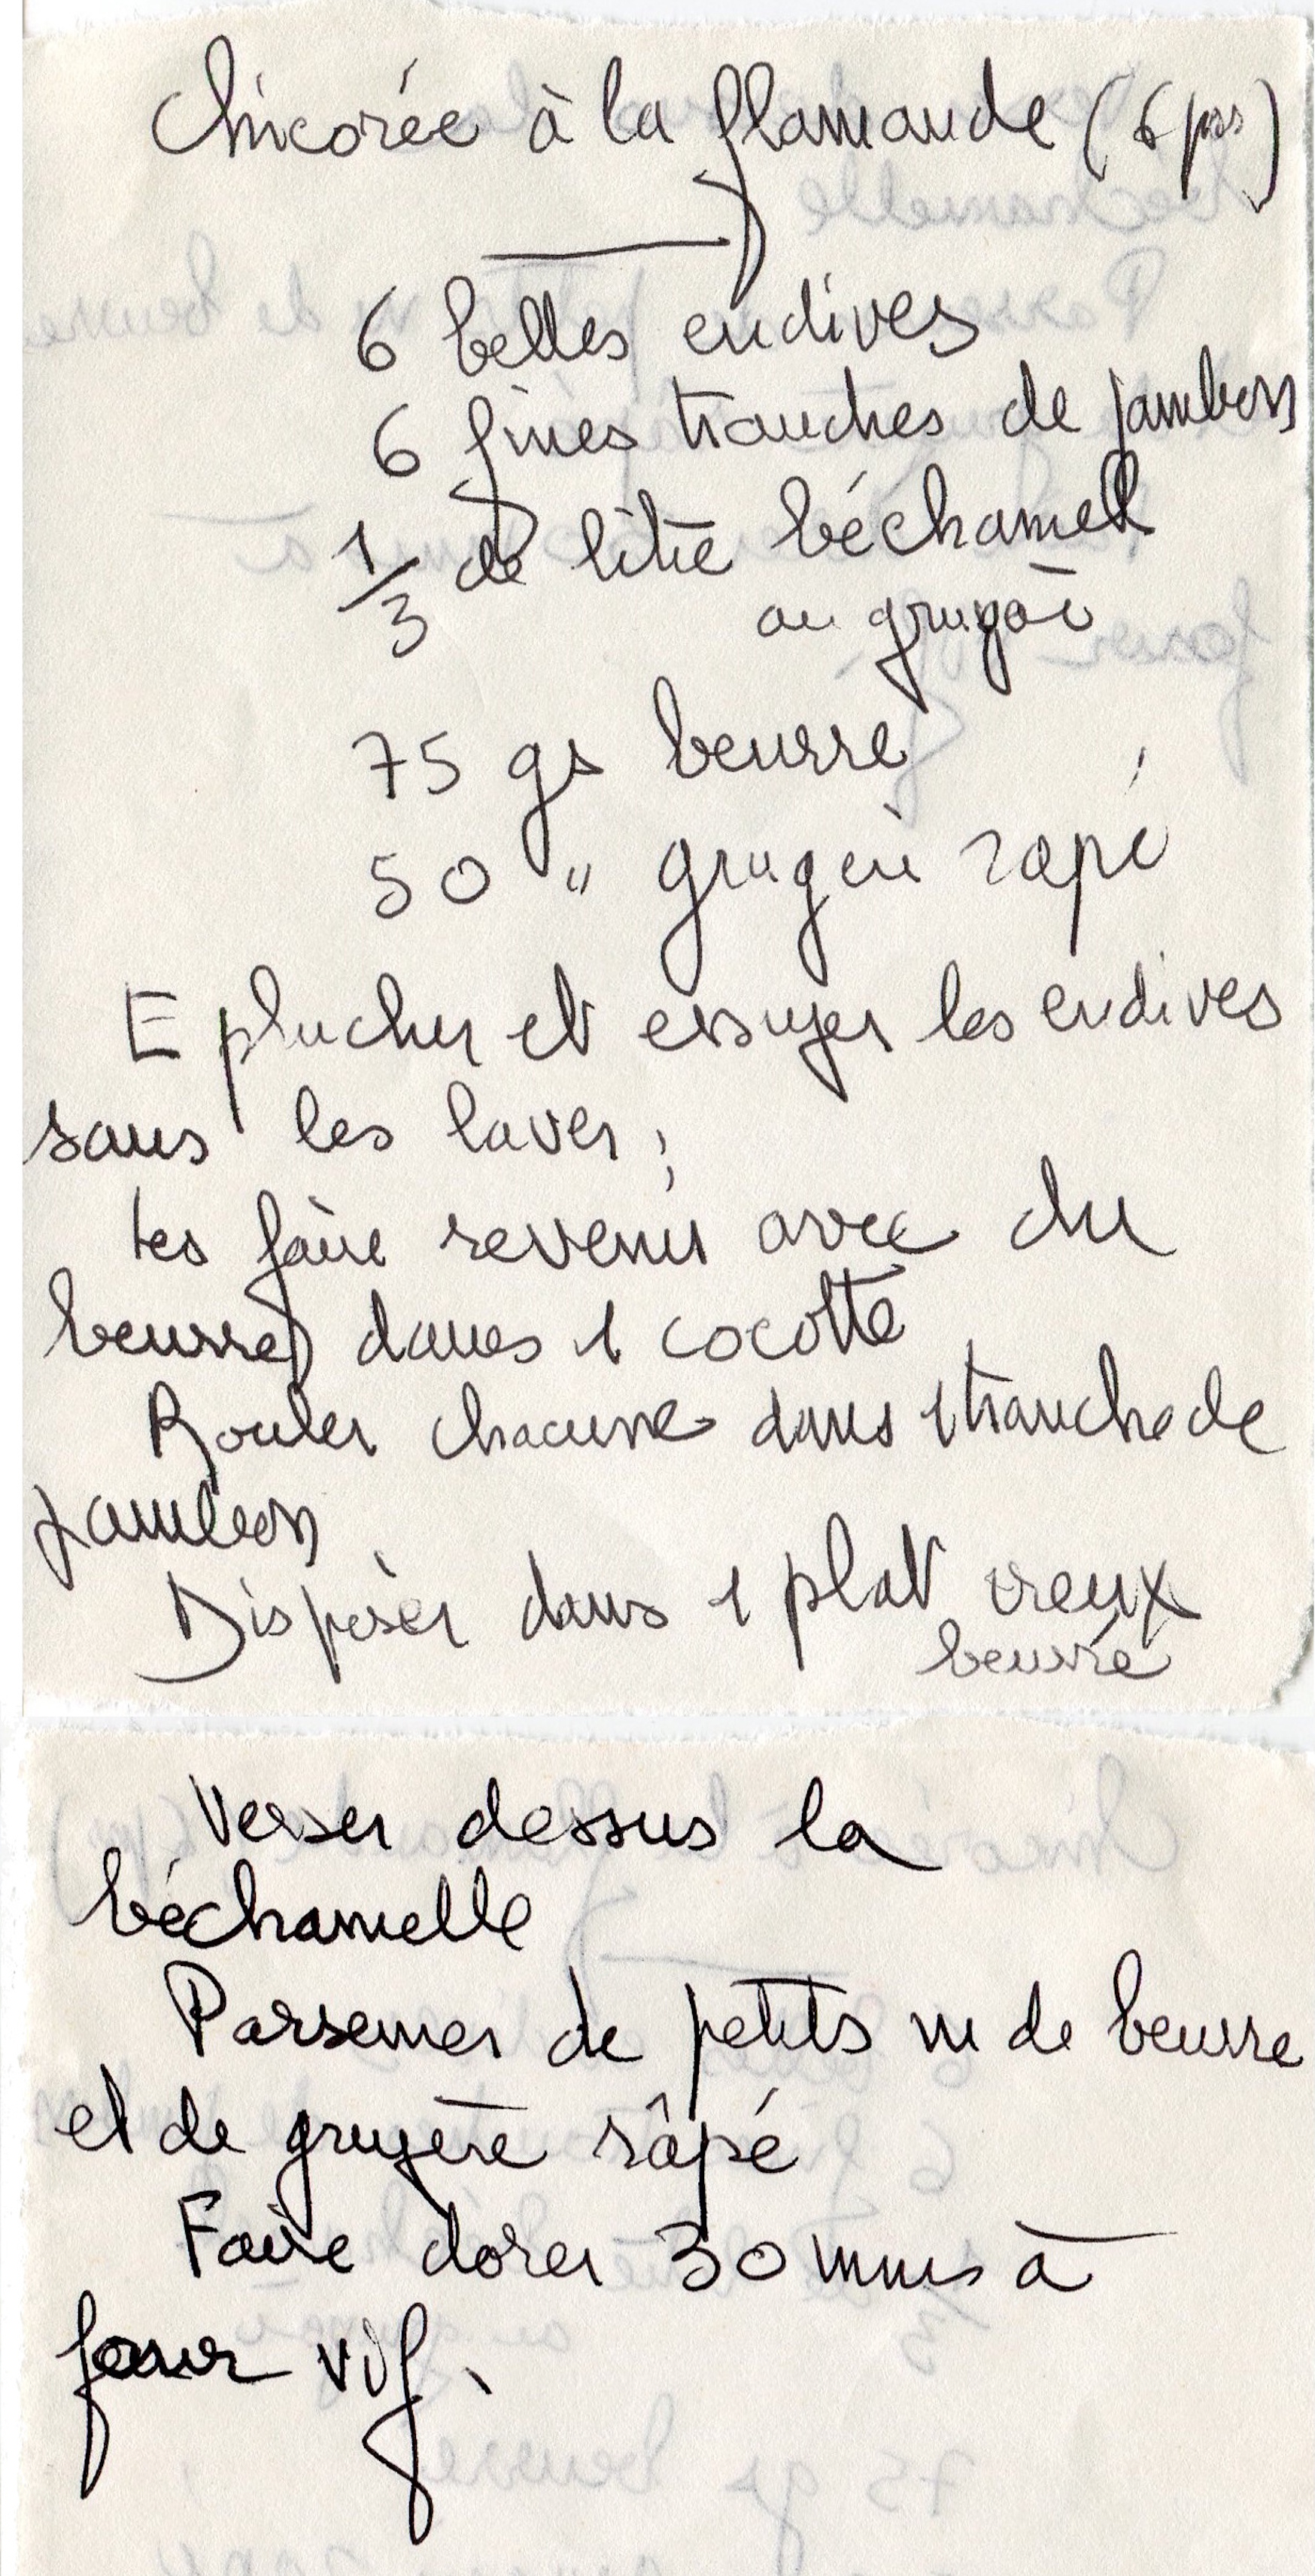 Chicorée à la flamande (6 prs)
6 belles endives
6 fines tranches de jambon
1/3 de litre béchamell
au gruyère
75 gs beurre
50 " gruyère rapé
Eplucher et essuyer les endives
sans les laver ;
les faire revenir avec du
beurre dans 1 cocotte
Rouler chacune dans 1 tranche de
jambon
Disposer dans 1 plat creux
beurré
Verser dessus la
béchamelle
Parsemer de petits m de beurre
et de gruyère râpé
Faire dorer 30 mns à
four vif.